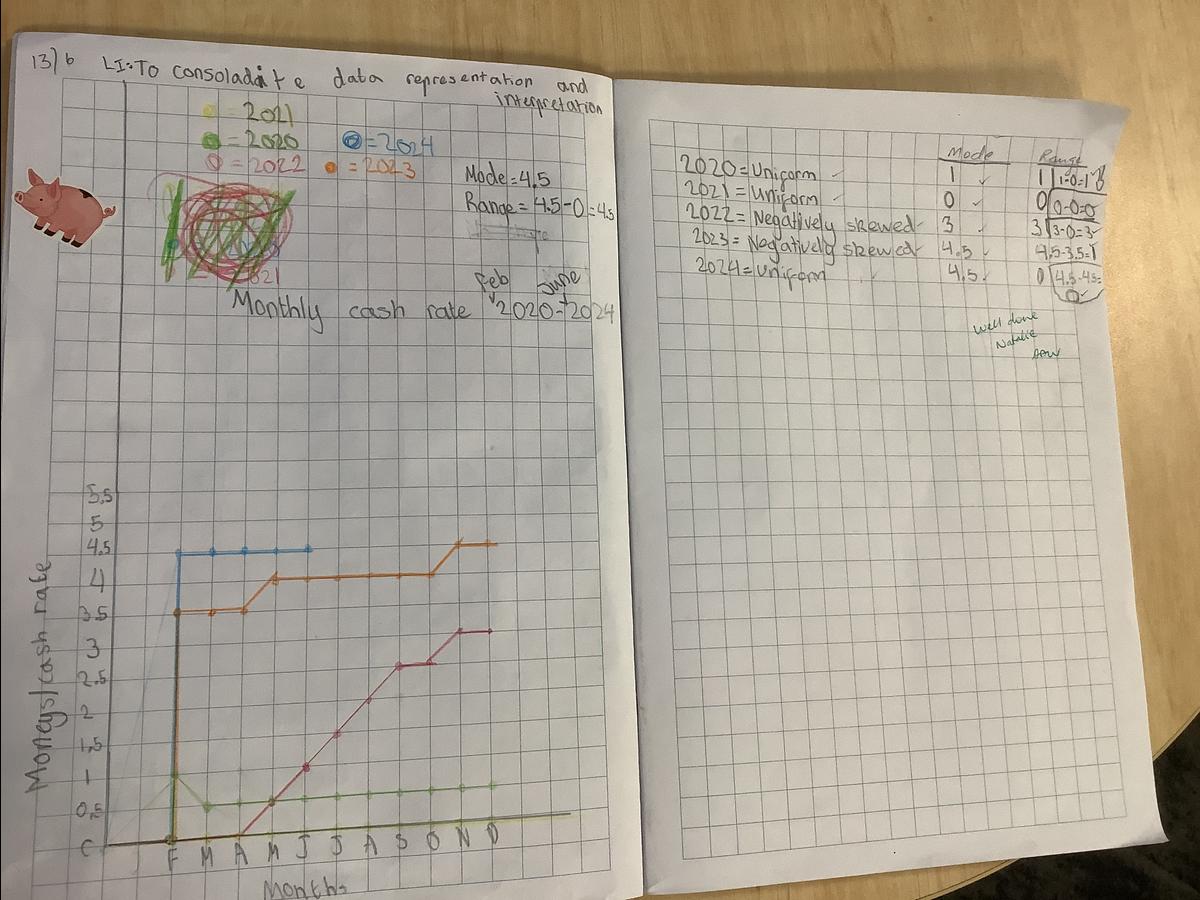 13) 6 LI: To consoladate data representation and
interpretation
= 2021
= 2020 = 2024
= 2022 = 2023
Mode = 4.5
Range = 4.5-0=4.5
Feb June
Monthly cash rate 2020-2024
Moneys/cash rate
5.5
5
4.5
4
3.5
3
2.5
2
1.5
1
0.5
F M A M J J A S O N D
Months
Mode Range
2020=Uniform 1 1 1-0=1
2021=Uniform 0 0 0-0=0
2022=Negatively skewed 3 3 3-0=3
2023=Negatively skewed 4.5 4.5-3.5=1
2024=Uniform 4.5 0 4.5-4.5=
0
Well done
Natalie